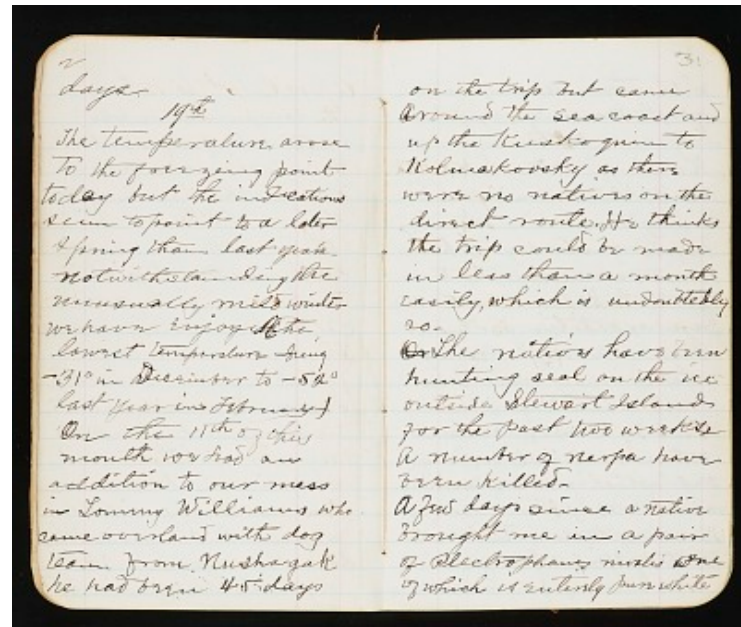 2
days.
19th
The temperature arose
to the freezing point
today but the indications
seem to point to a later
spring than last year
notwithstanding the
unusually mild winter
we have enjoyed the
lowest temperature being
-31° in December to -52°
last year in February
On the 11th of this
month we had an
addition to our mess
in Tommy Williams who
came overland with dog
team from Nushagak
he had been 45 days
3.
on the trip but came
around the sea coast and
up the Kuskoquim to
Kolmakovsky as there
were no natives on the
direct route. He thinks
the trip could be made
in less than a month
easily, which is undoubtebly
so.
The natives have been
hunting seal on the ice
outside Stewart Island
for the past two weeks
A number of nerpa have
been killed.
A few days since a native
brought me in a pair
of
one
of which is entirely pure white